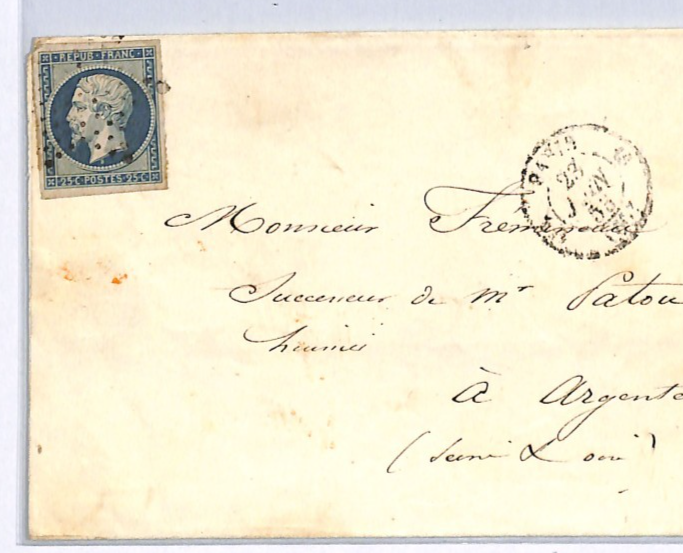 REPUB·FRANC·
25·C·POSTES·25·C
PARIS
23
JUIN
53
Monsieur
Successeur de Mr Patou
huissier
à Argente
(Seine & Oise)